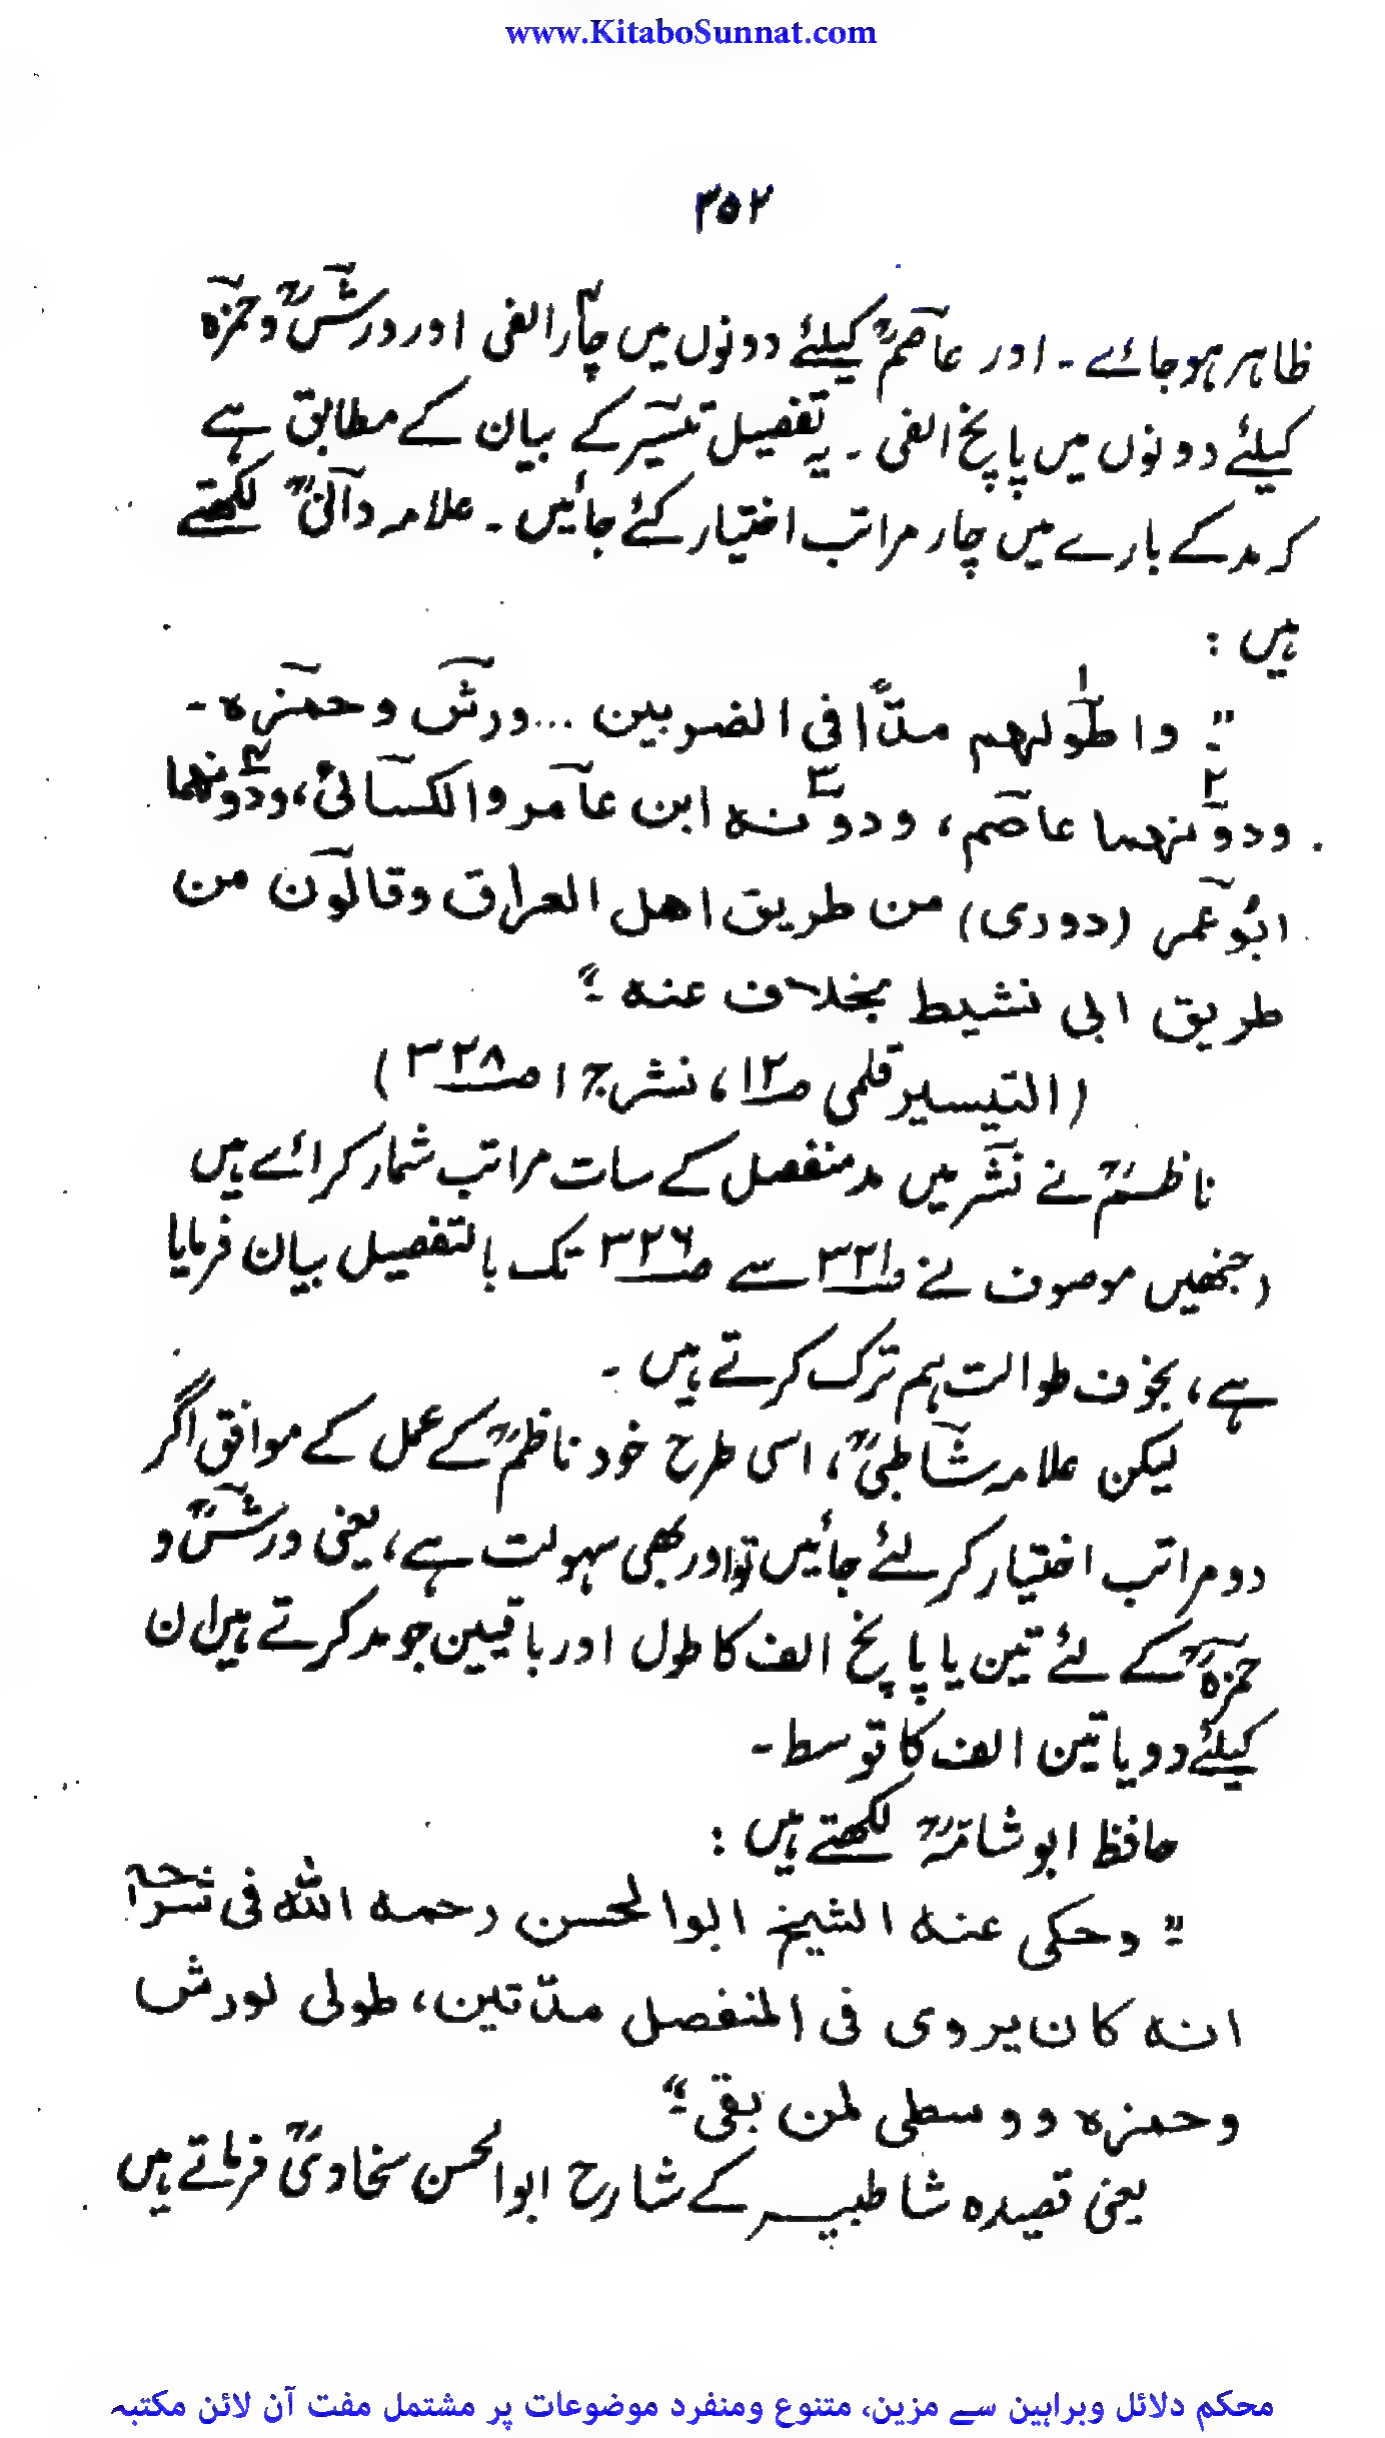 www.KitaboSunnat.com
۳۵۲
ظاہر ہو جائے۔ اور عاصمؒ کیلئے دونوں میں چار الفی اور ورشؒ و حمزہ
کیلئے دونوں میں پانچ الفی۔ یہ تفصیل تیسیر کے بیان کے مطابق ہے
کہ مد کے بارے میں چار مراتب اختیار کئے جائیں۔ علامہ دانیؒ لکھتے
ہیں :
" واطولهم مدًّا فی الضربین ... ورش و حمزہ۔
ودونهما عاصم، ودونه ابن عامر والکسائی، ودونهما
ابوعمر (دوری) من طریق اهل العراق وقالون من
طریق ابی نشیط بخلاف عنه "
(التیسیر قلمی ص۱۲، نشر ج ۱ ص۳۲۸)
ناظمؒ نے نشر میں مد منفصل کے سات مراتب شمار کرائے ہیں
(جنھیں موصوف نے ص۳۲۱ سے ص۳۲۶ تک بالتفصیل بیان فرمایا
ہے، بخوف طوالت ہم ترک کرتے ہیں۔
لیکن علامہ شاطبیؒ، اسی طرح خود ناظمؒ کے عمل کے موافق اگر
دو مراتب اختیار کر لئے جائیں تو اور بھی سہولت ہے، یعنی ورشؒ و
حمزہؒ کے لئے تین یا پانچ الف کا طول اور باقیین جو مد کرتے ہیں ان
کیلئے دو یا تین الف کا توسط۔
حافظ ابو شامہؒ لکھتے ہیں :
" وحکی عنه الشیخ ابوالحسن رحمه الله فی شرحه
انه کان یروی فی المنفصل مدّتین، طولی لورش
وحمزہ ووسطی لمن بقی "
یعنی قصیدہ شاطبیہ کے شارح ابوالحسن سخاویؒ فرماتے ہیں
محکم دلائل وبراہین سے مزین، متنوع ومنفرد موضوعات پر مشتمل مفت آن لائن مکتبہ